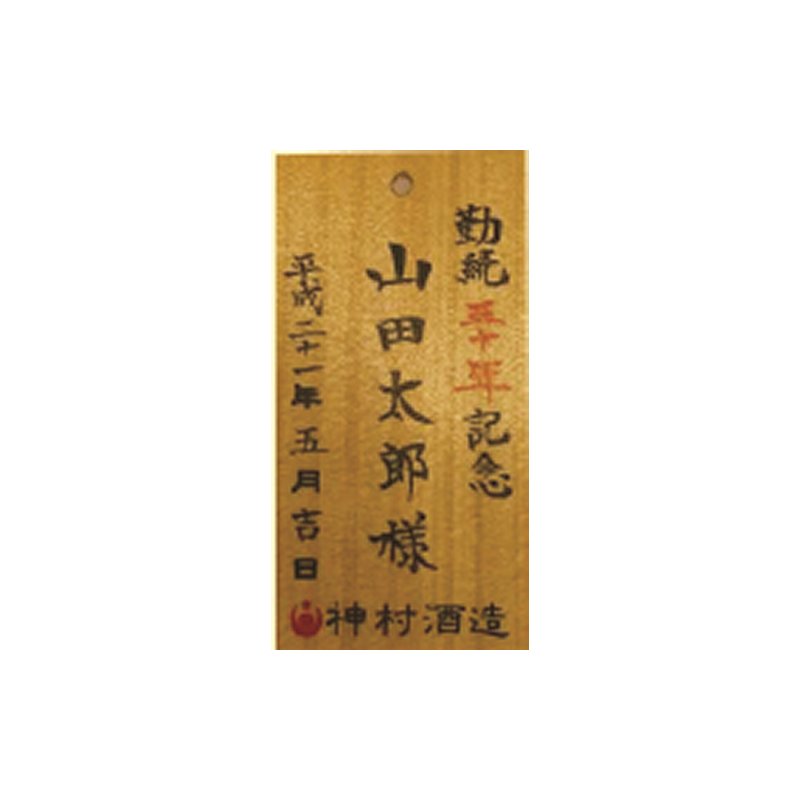 勤続五十年記念
山田太郎様
平成二十一年五月吉日
神村酒造